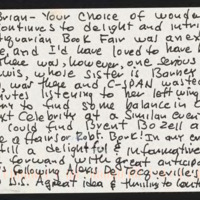 Brian- Your choice of wonde
ontinues to delight and intri
tiquarian Book Fair was an ex
e, and I'd have loved to have b
here was, however, one serious
wis, whose sister is
was there and C-SPAN waste
utes listening to her left wing
to find some balance in a
t Celebrity at a similar event
could find Brent Bozell a
Robt. Bork! In any en
ill a delightful & informative
forward with great anticipa
s following Alexis De Tocqueville's
U.S. A great idea &